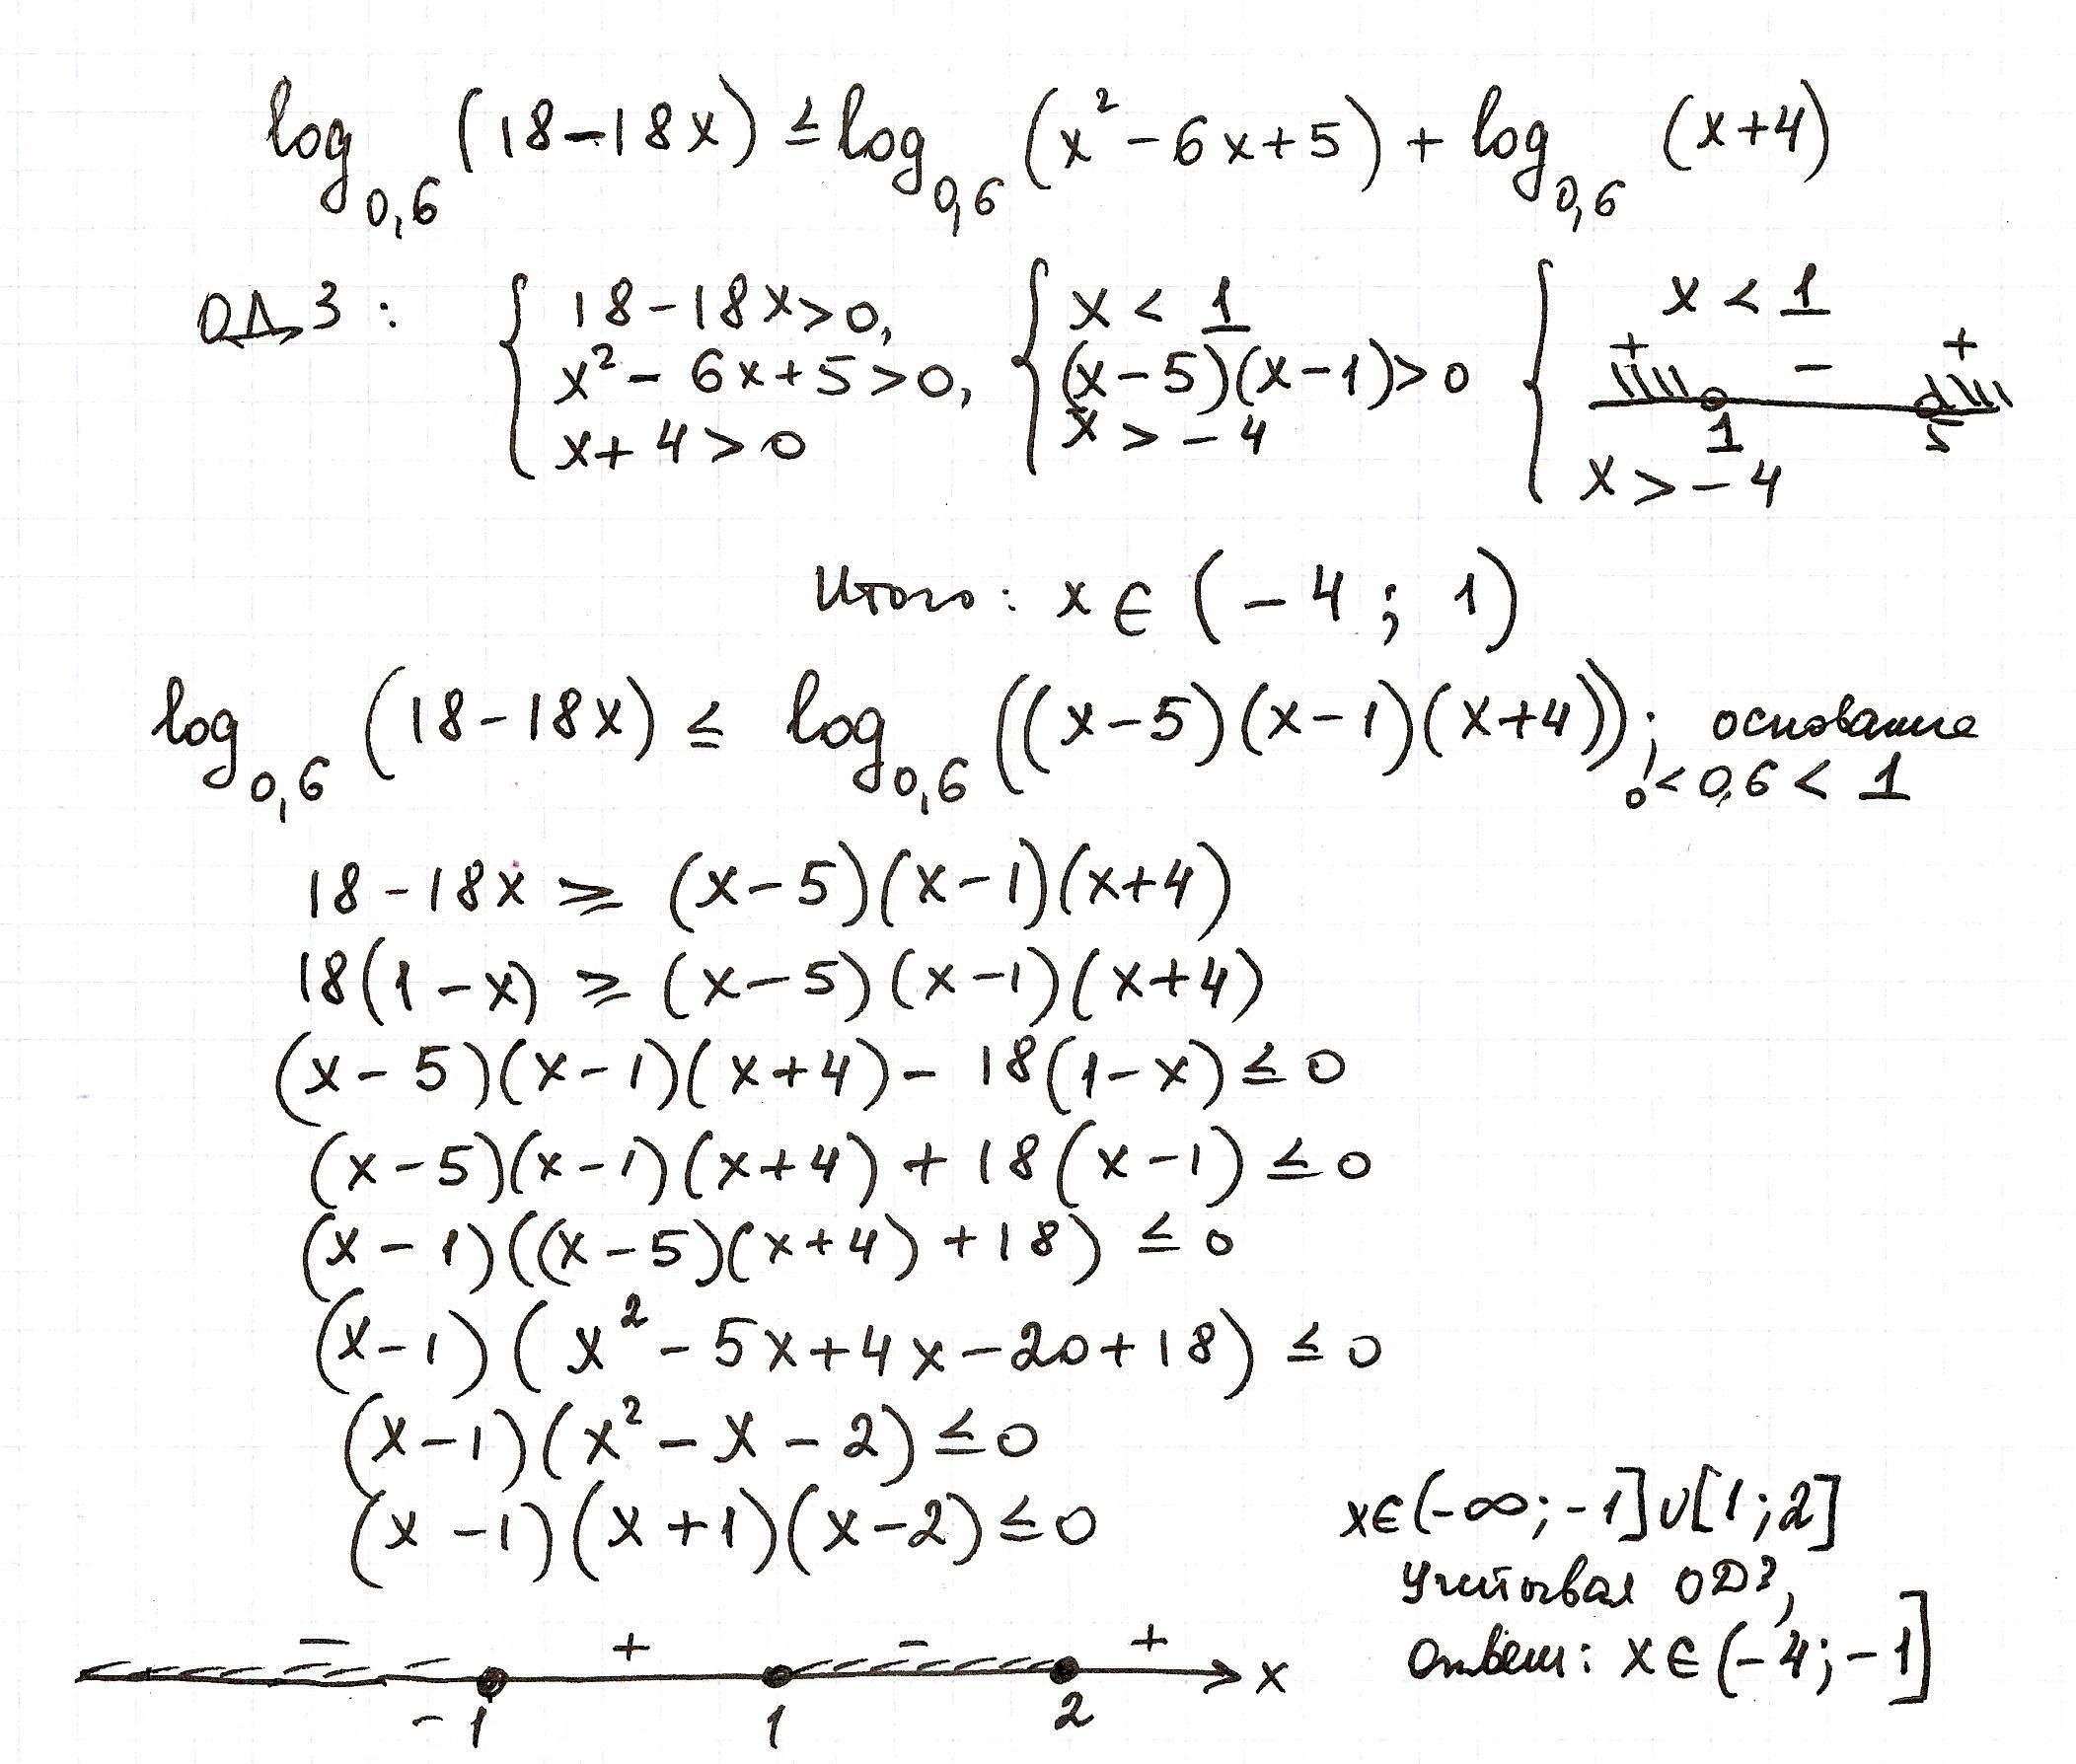 log₀,₆ (18-18x) ≤ log₀,₆ (x²-6x+5) + log₀,₆ (x+4)
ОДЗ: { 18-18x>0, { x < 1 { x < 1
x²-6x+5>0, (x-5)(x-1)>0 + - +
1 5
x+4>0 x > -4 x > -4
Итого: x ∈ (-4; 1)
log₀,₆ (18-18x) ≤ log₀,₆ ((x-5)(x-1)(x+4)); основание
0<0,6<1
18-18x ≥ (x-5)(x-1)(x+4)
18(1-x) ≥ (x-5)(x-1)(x+4)
(x-5)(x-1)(x+4) - 18(1-x) ≤ 0
(x-5)(x-1)(x+4) + 18(x-1) ≤ 0
(x-1)((x-5)(x+4)+18) ≤ 0
(x-1)(x²-5x+4x-20+18) ≤ 0
(x-1)(x²-x-2) ≤ 0
(x-1)(x+1)(x-2) ≤ 0
- + - + x
-1 1 2
x∈(-∞;-1]∪[1;2]
Учитывая ОДЗ,
Ответ: x∈(-4;-1]